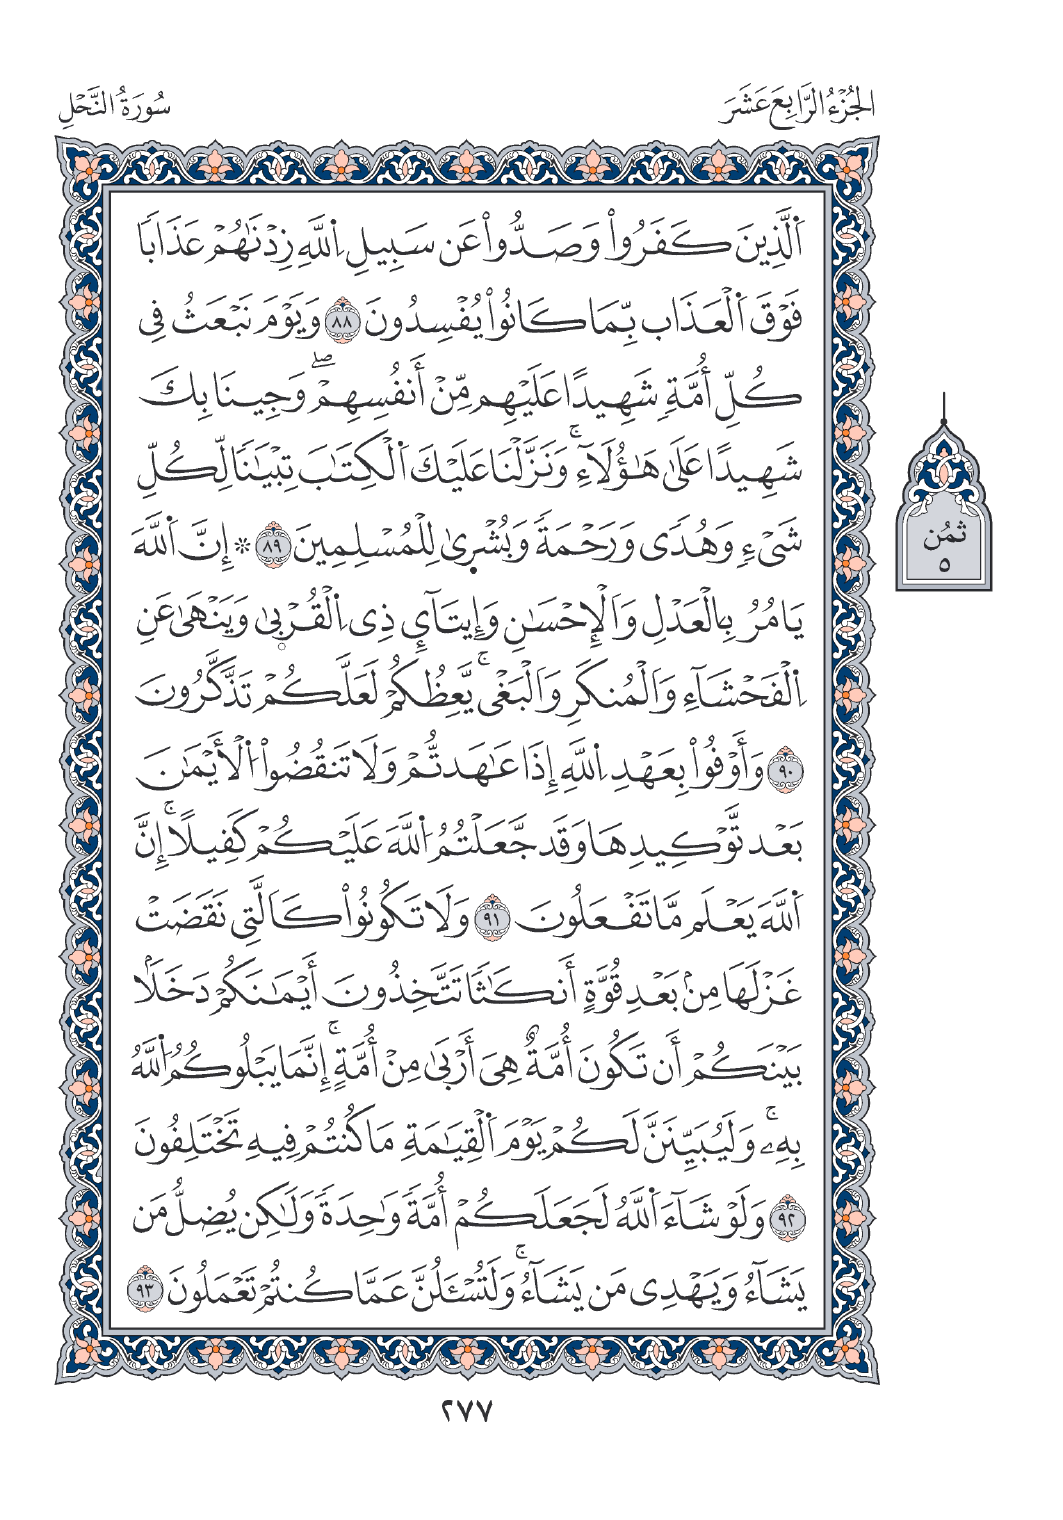 الجُزْءُ الرَّابِعَ عَشَرَ
سُورَةُ النَّحْلِ
اَ۬لَّذِينَ كَفَرُواْ وَصَدُّواْ عَن سَبِيلِ اِ۬للَّهِ زِدْنَٰهُمْ عَذَابٗا
فَوْقَ اَ۬لْعَذَاب بِّمَا كَانُواْ يُفْسِدُونَ ٨٨ وَيَوْمَ نَبْعَثُ فِي
كُلِّ أُمَّةٖ شَهِيدًا عَلَيْهِم مِّنْ أَنفُسِهِمْۖ وَجِينَا بِكَ
شَهِيدًا عَلَىٰ هَٰؤُلَآءِۚ وَنَزَّلْنَا عَلَيْكَ اَ۬لْكِتَٰبَ تِبْيَٰنٗا لِّكُلِّ
شَيْءٖ وَهُدٗى وَرَحْمَةٗ وَبُشْر۪يٰ لِلْمُسْلِمِينَ ٨٩ ۞ إِنَّ اَ۬للَّهَ
يَامُرُ بِالْعَدْلِ وَالْإِحْسَٰنِ وَإِيتَآءِي ذِي اِ۬لْقُرْب۪يٰ وَيَنْهَىٰ عَنِ
اِ۬لْفَحْشَآءِ وَالْمُنكَرِ وَالْبَغْيۚ يَّعِظُكُمْ لَعَلَّكُمْ تَذَّكَّرُونَ
٩٠ وَأَوْفُواْ بِعَهْدِ اِ۬للَّهِ إِذَا عَٰهَدتُّمْ وَلَا تَنقُضُواْ اُ۬لْأَيْمَٰنَ
بَعْد تَّوْكِيدِهَا وَقَد جَّعَلْتُمُ اُ۬للَّهَ عَلَيْكُمْ كَفِيلًاۚ إِنَّ
اَ۬للَّهَ يَعْلَم مَّا تَفْعَلُونَ ٩١ وَلَا تَكُونُواْ كَالَّتِي نَقَضَتْ
غَزْلَهَا مِنۢ بَعْدِ قُوَّةٍ أَنكَٰثٗا تَتَّخِذُونَ أَيْمَٰنَكُمْ دَخَلَۢا
بَيْنَكُمْ أَن تَكُونَ أُمَّةٌ هِيَ أَرْبَىٰ مِنْ أُمَّةٍۚ إِنَّمَا يَبْلُوكُمُ اُ۬للَّهُ
بِهِۦۚ وَلَيُبَيِّنَنَّ لَكُمْ يَوْمَ اَ۬لْقِيَٰمَةِ مَا كُنتُمْ فِيهِ تَخْتَلِفُونَ
٩٢ وَلَوْ شَآءَ اَ۬للَّهُ لَجَعَلَكُمْ أُمَّةٗ وَٰحِدَةٗ وَلَٰكِن يُضِلُّ مَن
يَشَآءُ وَيَهْدِي مَن يَشَآءُۚ وَلَتُسْـَٔلُنَّ عَمَّا كُنتُمْ تَعْمَلُونَ ٩٣
ثمُن
٥
٢٧٧